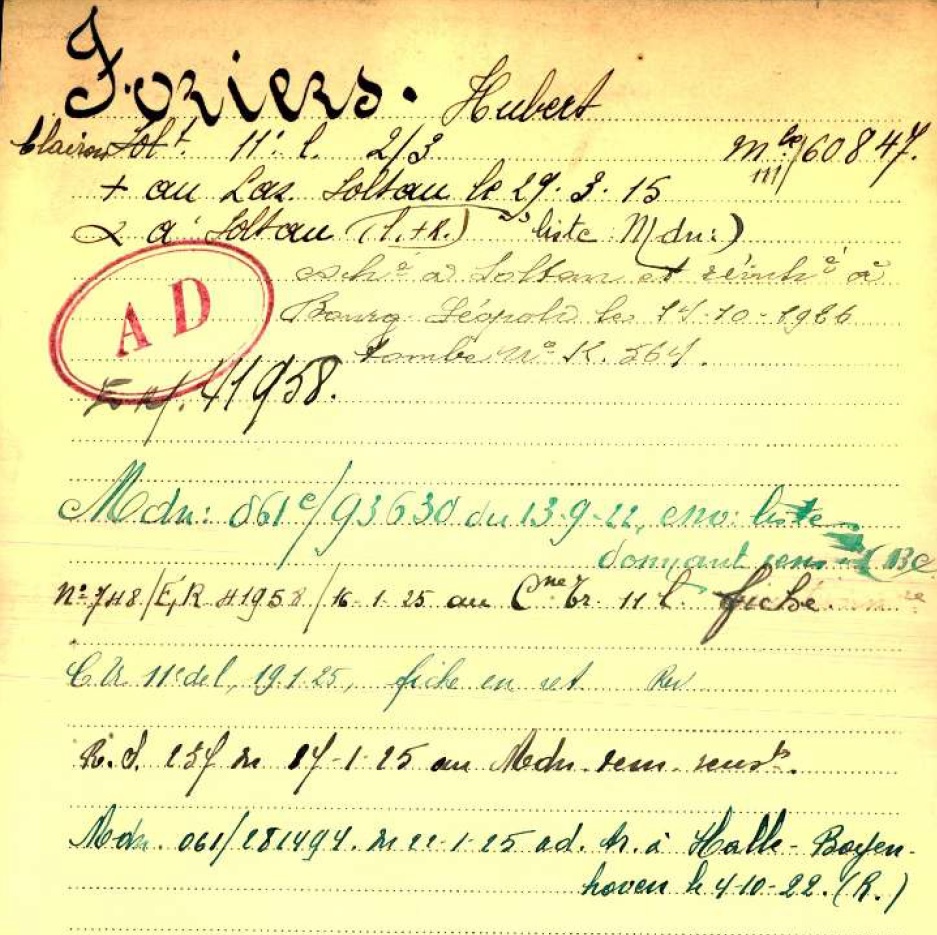 Foriers. Hubert
Clairon Solt. 11e l. 2/3 mle 111/60847.
+ au Laz. Soltau le 29.3.15
à Soltau (l.+R.) liste Mdn:)
exhé à Soltau et réinhé à
Bourg Léopold le 14-10-1926
tombe No K. 264.
E R/. 41958.
AD
Mdn: 061e/93630 du 13-9-22, env: liste
donnant
No 748/E,R 41958/16-1-25 au Cne Tr. 11 l. fiche.
C tr. 11e de l, 19.1.25, fiche en ret
R.S. 257 du 17-1-25 au Mdn. dem. renst.
Mdn. 061/281494. du 22-1-25 ad. tr. à Halle-Boyen-
hoven le 4-10-22. (R.)